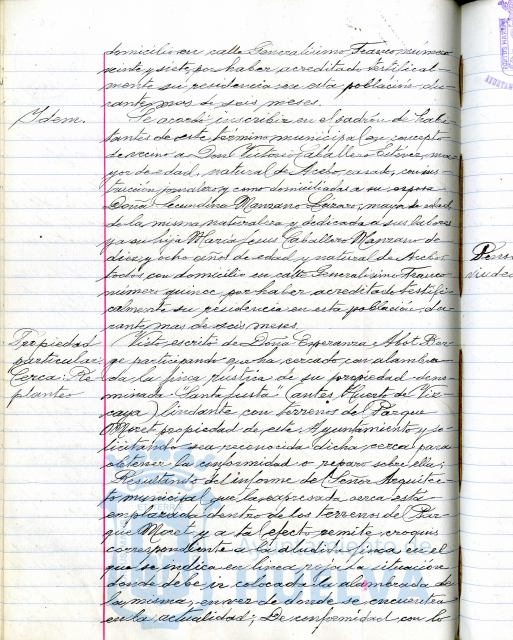 domicilio en calle Generalísimo Franco número
veinte y siete, por haber acreditado testifical-
mente su residencia en esta población du-
rante mas de seis meses.
Idem.
Se acordó inscribir en el padrón de habi-
tantes de este término municipal en concepto
de vecino a Don Victorio Caballero Estévez, ma-
yor de edad, natural de Acebo, casado, con ins-
trucción, jornalero y como domiciliadas a su esposa
Doña Secundina Manzano Lázaro, mayor de edad
de la misma naturaleza y dedicada a sus labores
y a su hija María Jesus Caballero Manzano de
diez y ocho años de edad y natural de Acebo,
todos con domicilio en calle Generalísimo Franco
número quince, por haber acreditado testifi-
calmente su residencia en esta población du-
rante mas de seis meses.
Propiedad
particular:
Cerca: Re-
planteo
Visto escrito de Doña Esperanza Abot
participando que ha cercado con alambra-
da la finca rústica de su propiedad deno-
minada Santa Justa (antes Huerto de Viz-
caya) lindante con terrenos del Parque
Moret propiedad de este Ayuntamiento y so-
licitando sea reconocida dicha cerca para
obtener la conformidad o reparo sobre ella;
Resultando del informe del Señor Arquitec-
to municipal que la expresada cerca está
emplazada dentro de los terrenos del Par-
que Moret y a tal efecto remite croquis
correspondiente a la aludida finca en el
que se indica en línea roja la situación
donde debe ir colocada la alambrada de
la misma, en vez de donde se encuentra
en la actualidad; De conformidad con lo